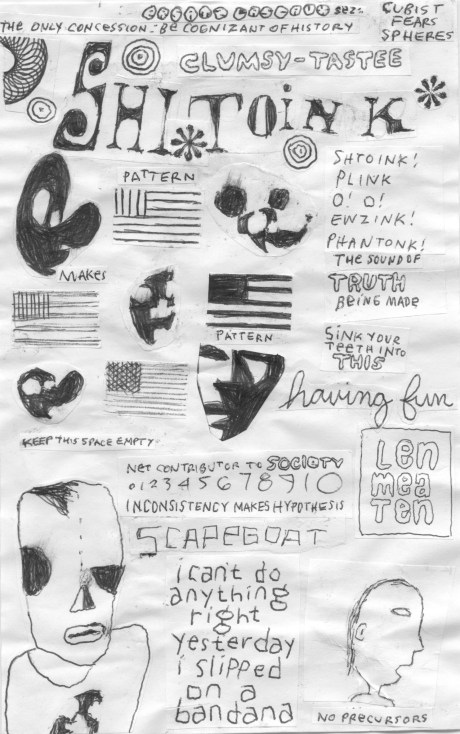 SEZ:
THE ONLY CONCESSION - BE COGNIZANT OF HISTORY
CUBIST
FEARS
SPHERES
CLUMSY-TASTEE
SHITOINK
PATTERN
SHTOINK!
PLINK
O! O!
EWZINK!
PHANTONK!
THE SOUND OF
TRUTH
BEING MADE
MAKES
PATTERN
SINK YOUR
TEETH INTO
THIS
having fun
KEEP THIS SPACE EMPTY
NET CONTRIBUTOR TO SOCIETY
012345678910
INCONSISTENCY MAKES HYPOTHESIS
LEN
MEA
TEN
SCAPEGOAT
i can't do
anything
right
yesterday
i slipped
on a
bandana
NO PRECURSORS